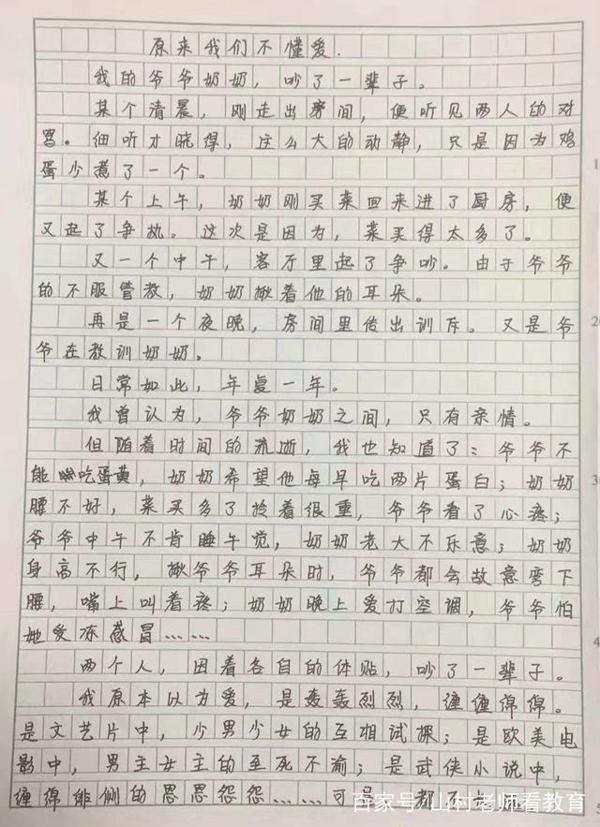 原来我们不懂爱.
我的爷爷奶奶，吵了一辈子。
某个清晨，刚走出房间，便听见两人的对
骂。细听才晓得，这么大的动静，只是因为鸡
蛋少煮了一个。
某个上午，奶奶刚买菜回来进了厨房，便
又起了争执。这次是因为，菜买得太多了。
又一个中午，客厅里起了争吵。由于爷爷
的不服管教，奶奶揪着他的耳朵。
再是一个夜晚，房间里传出训斥。又是爷
爷在教训奶奶。
日常如此，年复一年。
我曾认为，爷爷奶奶之间，只有亲情。
但随着时间的流逝，我也知道了：爷爷不
能吃蛋黄，奶奶希望他每早吃两片蛋白；奶奶
腰不好，菜买多了拎着很重，爷爷看了心疼；
爷爷中午不肯睡午觉，奶奶老大不乐意；奶奶
身高不行，揪爷爷耳朵时，爷爷都会故意弯下
腰，嘴上叫着疼；奶奶晚上爱打空调，爷爷怕
她受冻感冒……
两个人，因着各自的体贴，吵了一辈子。
我原本以为爱，是轰轰烈烈，缠缠绵绵。
是文艺片中，少男少女的互相试探；是欧美电
影中，男主女主的至死不渝；是武侠小说中，
缠绵悱恻的恩恩怨怨……可是，都不
百家号/山村老师看教育
1
20
30
4
5